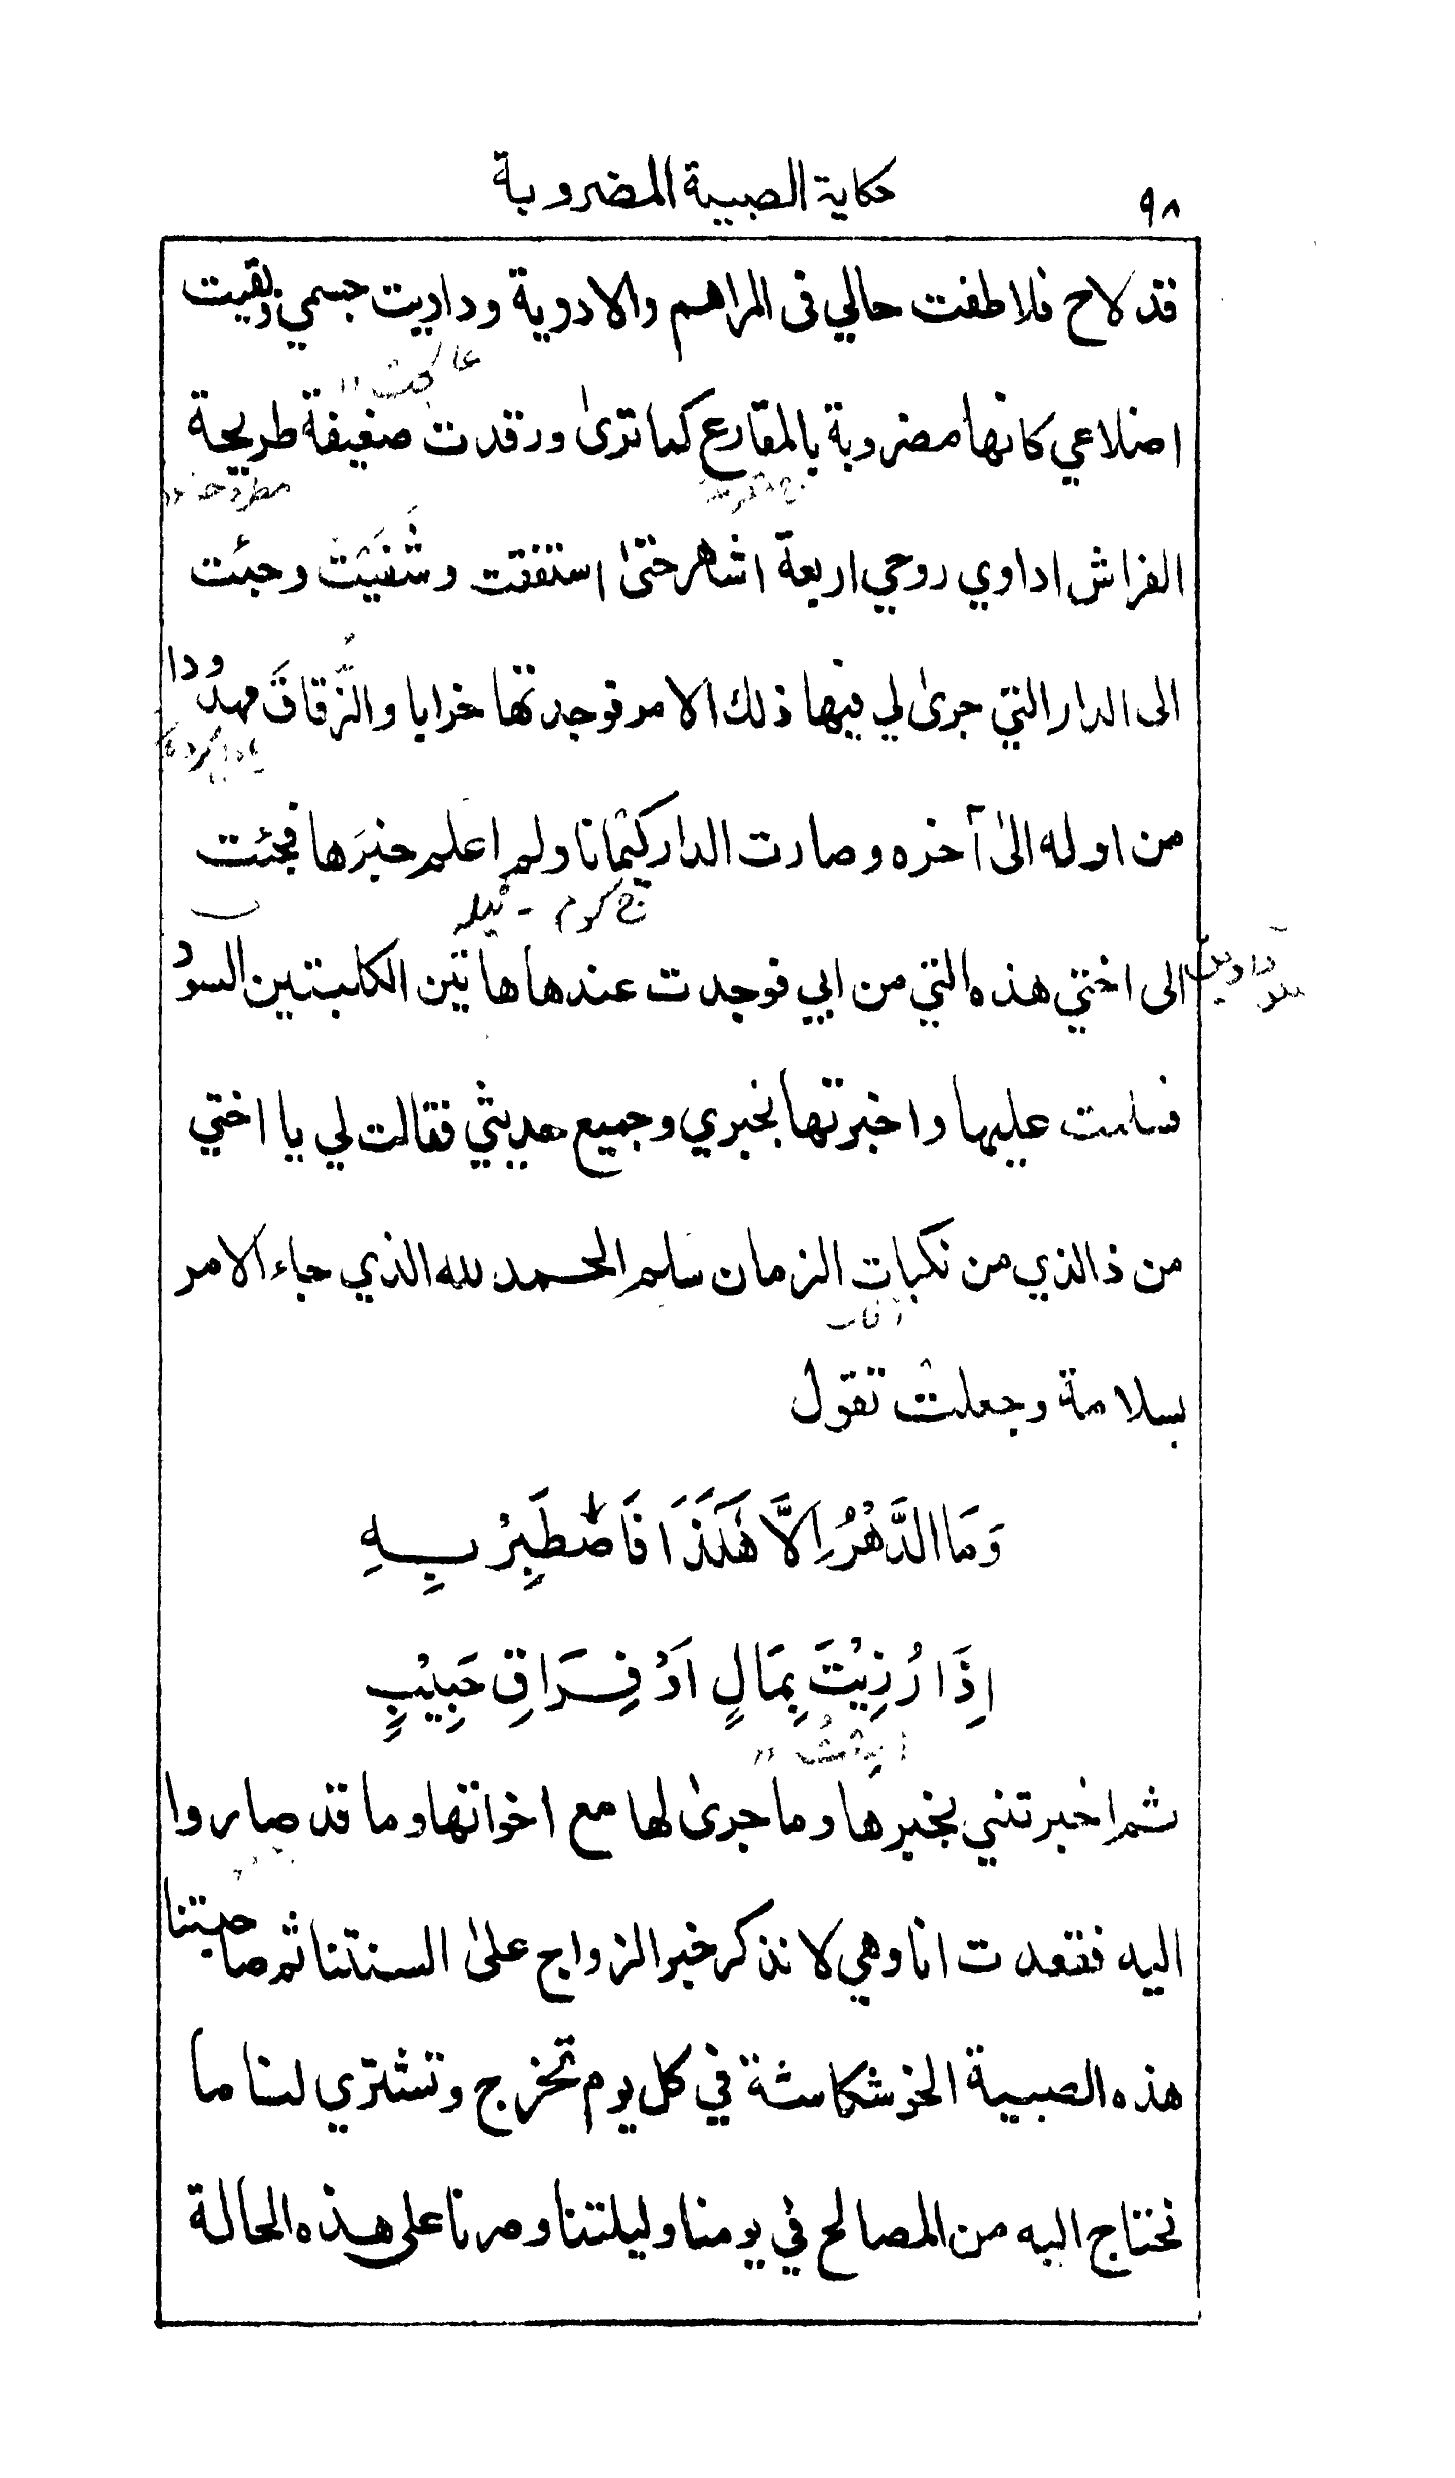 ٩٨
حكاية الصبية المضروبة
قد لاح فلاطفت حالي فى المراهم والادوية وداويت جسمي وبقيت
اضلاعي كانها مضروبة بالمقارع كما ترىٰ ورقدت ضعيفة طريحة
الفراش اداوي روحي اربعة اشهر حتىٰ استفقت وشُفَيْتُ وجئت
الى الدار التي جرىٰ لي فيها ذلك الامر فوجدتها خرابا والزُّقاقَ مهدودا
من اوله الىٰ آخره وصارت الدار كيمانا ولم اعلم خبَرَها فجئت
الى اختي هذه التي من ابي فوجدت عندها هاتين الكلبتين السود
فسلمت عليها واخبرتها بخبري وجميع حديثي فقالت لي يا اختي
من ذا لذي من نكبات الزمان سلم الحمد لله الذي جاء الامر
بسلامة وجعلت تقول
وَمَا الدَّهْرُ اِلَّا هٰكَذَا فَاصْطَبِرْ بِهِ
اِذَا رُزِيْتَ بِمَالٍ اَوْ فِرَاقِ حَبِيْبٍ
ثم اخبرتني بخبرها وما جرىٰ لها مع اخواتها وما قد صاروا
اليه فقعدت انا وهي لا نذكر خبر الزواج علىٰ السنتنا ثم صاحبتنا
هذه الصبية الخوشكاشة في كل يوم تخرج وتشتري لنا ما
نحتاج اليه من المصالح في يومنا وليلتنا وصرنا على هذه الحالة